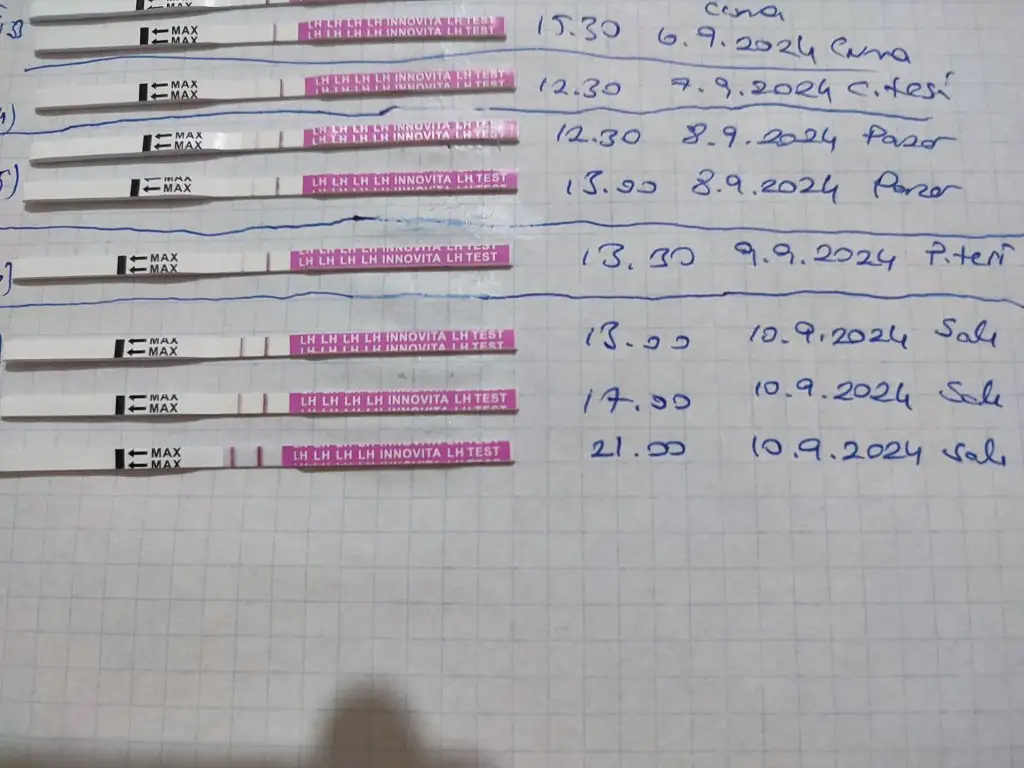 Cuma
MAX LH LH LH LH INNOVITA LH TEST 15.30 6.9.2024 Cuma
MAX LH LH LH LH INNOVITA LH TEST
MAX LH LH LH LH INNOVITA LH TEST 12.30 7.9.2024 C.tesi
MAX LH LH LH LH INNOVITA LH TEST
MAX LH LH LH LH INNOVITA LH TEST 12.30 8.9.2024 Pazar
MAX LH LH LH LH INNOVITA LH TEST
MAX LH LH LH LH INNOVITA LH TEST 13.00 8.9.2024 Pazar
MAX LH LH LH LH INNOVITA LH TEST
MAX LH LH LH LH INNOVITA LH TEST 13.30 9.9.2024 P.tesi
MAX LH LH LH LH INNOVITA LH TEST
MAX LH LH LH LH INNOVITA LH TEST 13.00 10.9.2024 Salı
MAX LH LH LH LH INNOVITA LH TEST
MAX LH LH LH LH INNOVITA LH TEST 17.00 10.9.2024 Salı
MAX LH LH LH LH INNOVITA LH TEST
MAX LH LH LH LH INNOVITA LH TEST 21.00 10.9.2024 Salı
MAX LH LH LH LH INNOVITA LH TEST